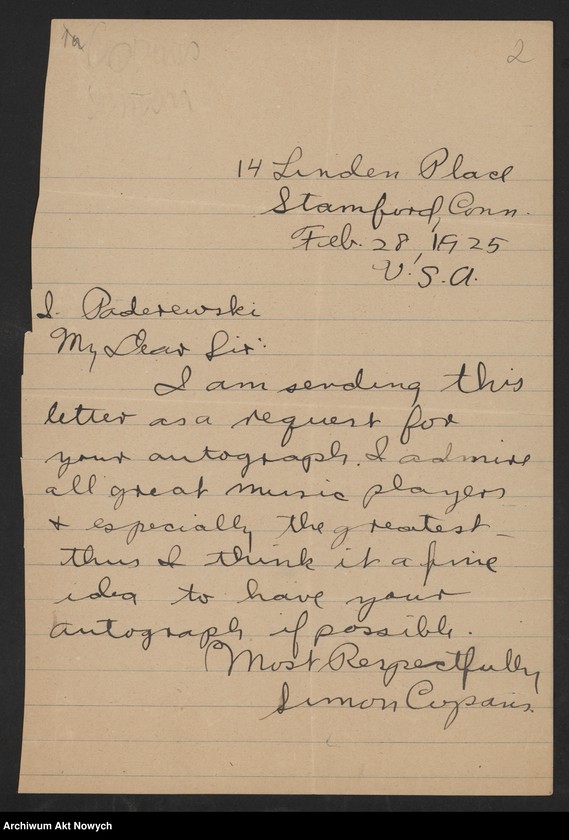 2
14 Linden Place
Stamford, Conn.
Feb. 28, 1925
U.S.A.
I. Paderewski
My Dear Sir:
I am sending this
letter as a request for
your autograph. I admire
all great music players
& especially the greatest –
thus I think it a fine
idea to have your
autograph if possible.
Most Respectfully
Simon Copans.
Archiwum Akt Nowych